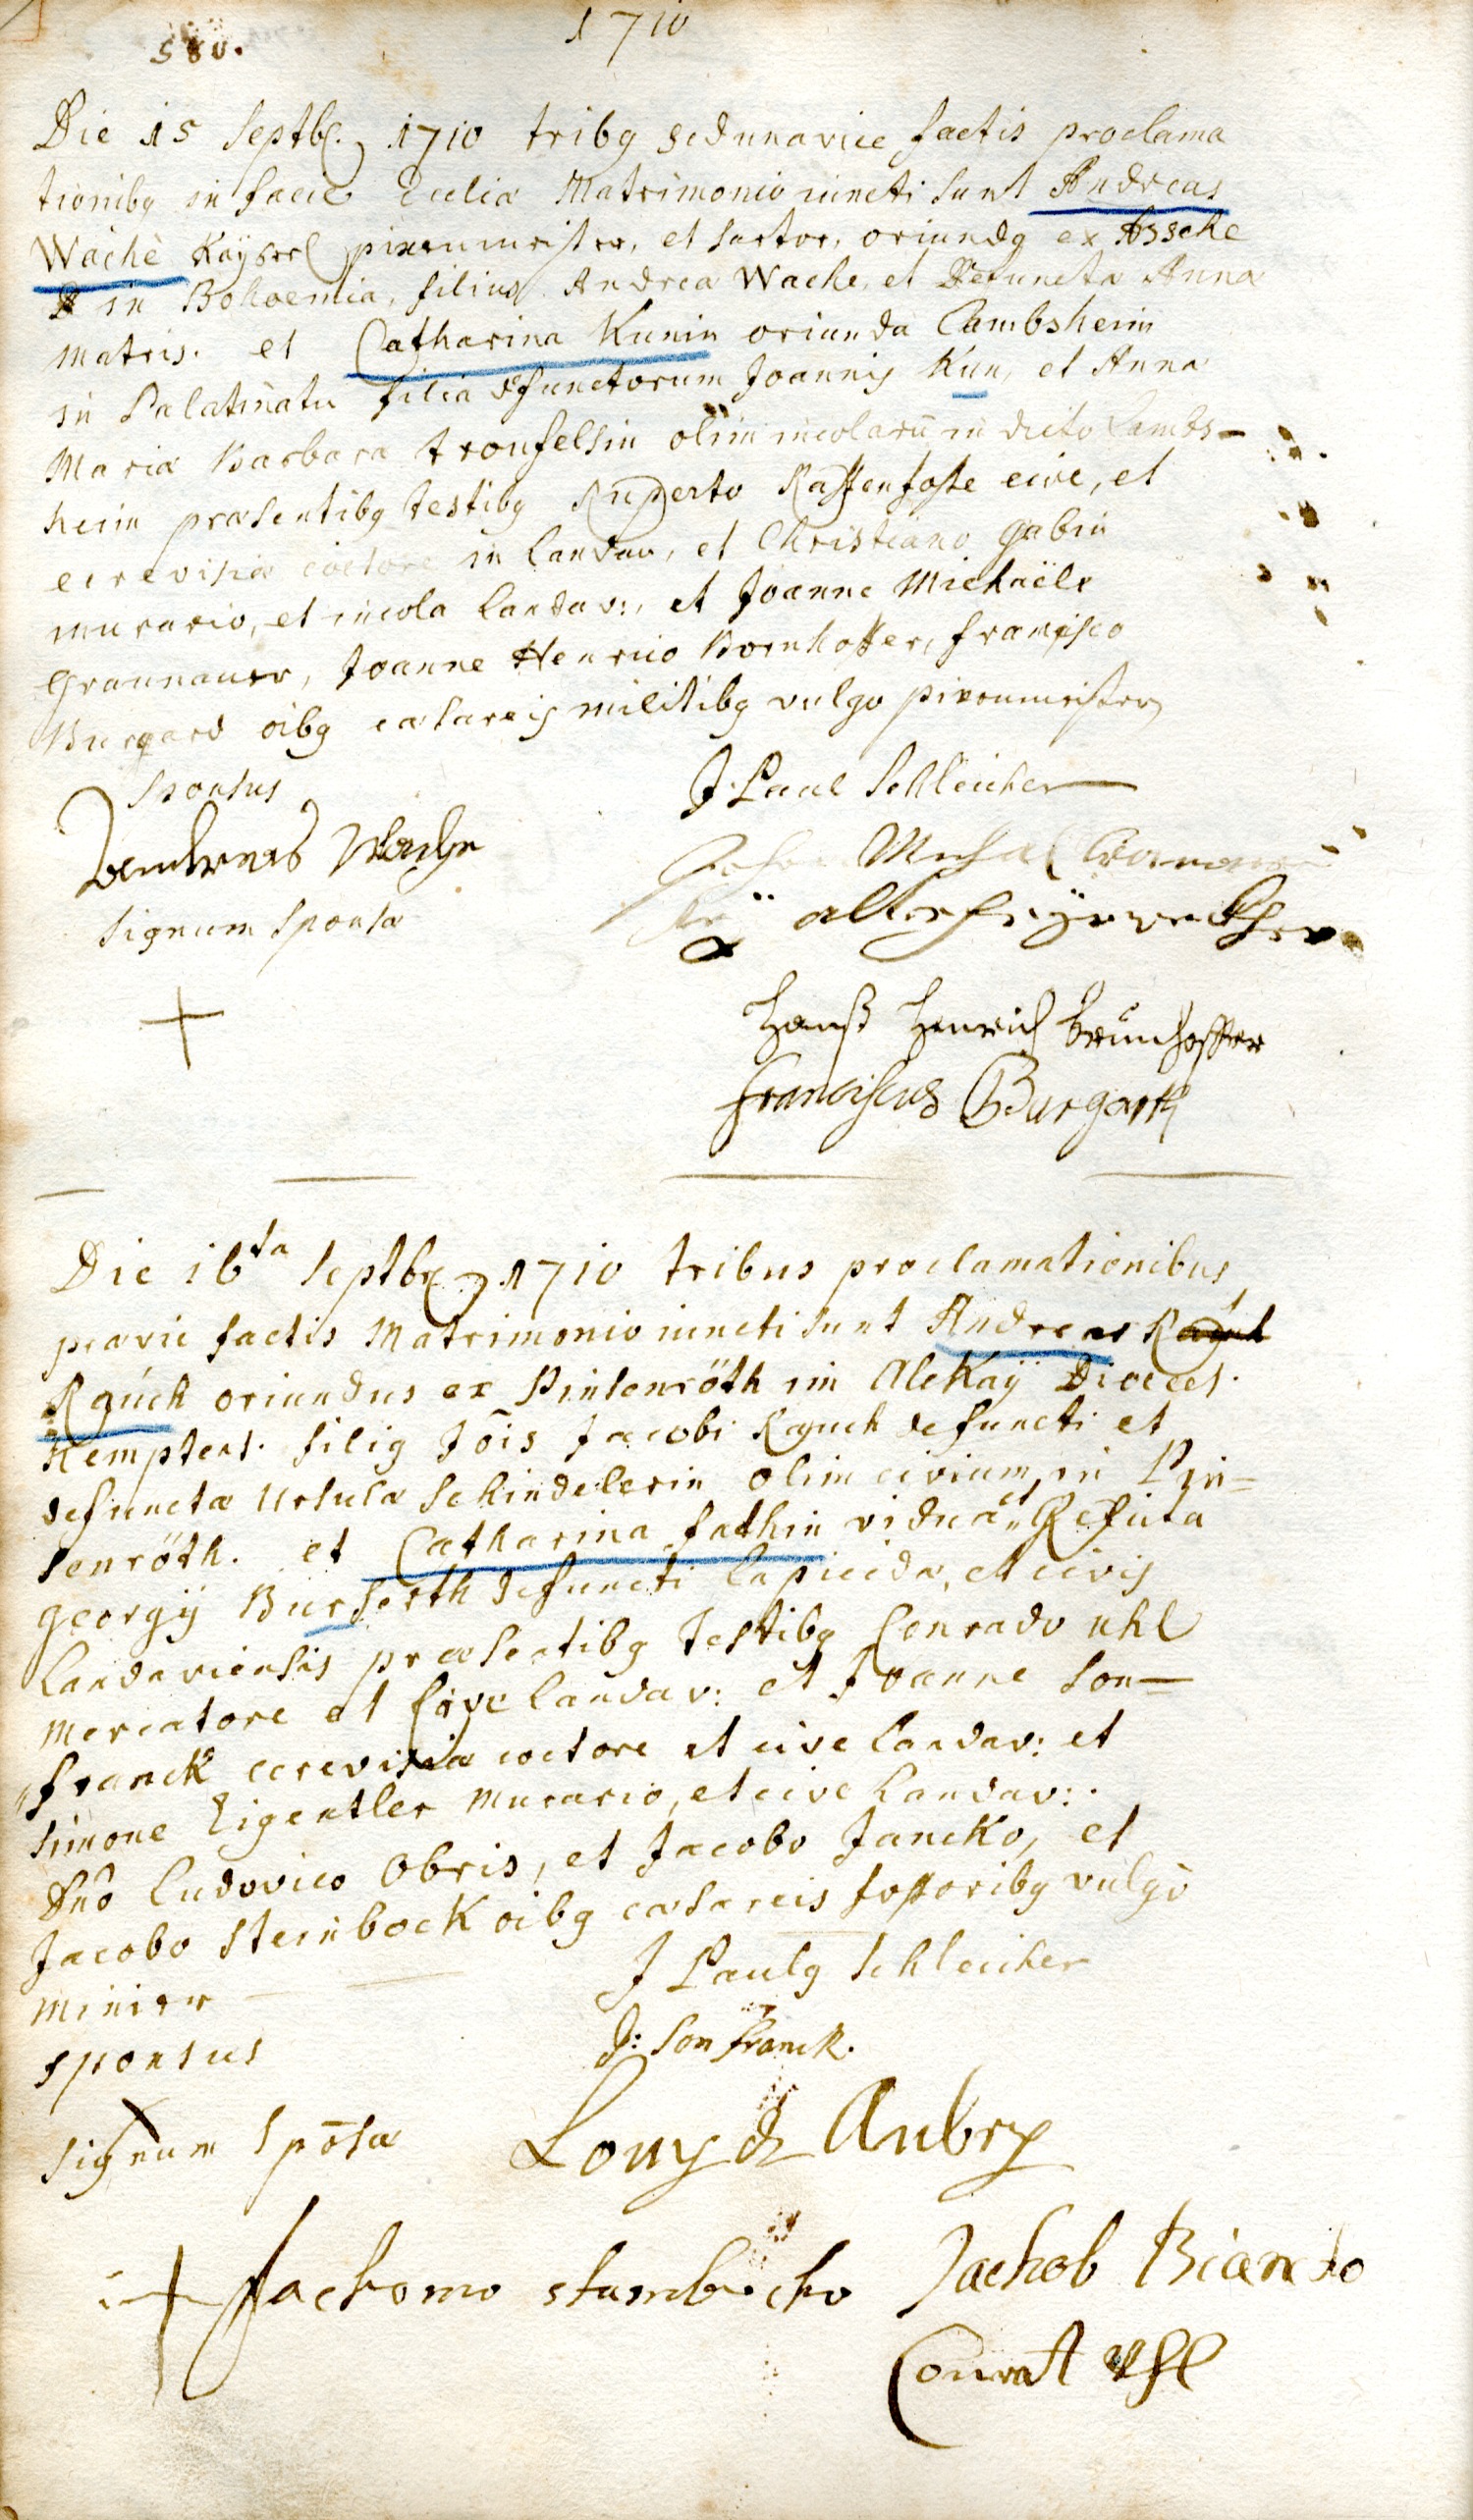 1710
580.
Die 15 Septbr. 1710 tribg factis proclama
tionibg in facie Eccliæ Matrimonio iuncti sunt Andreas
Wache Kaÿserl et sartor, oriundg ex Assche
in Bohoemia, filius Andreæ Wache, et defunctæ Annæ
matris. et Catharina Kunin oriunda Lambsheim
in Palatinatu filia defunctorum Joannis Kun, et Anna
Maria Barbara tronfelsin olim incolarū in dicto Lambs-
heim præsentibg testibg Ruperto cive, et
cerevisiæ coctore in Landau, et Christiano Gabin
murario, et incola Landav:, et Joanne Michaële
Graunauer, Joanne Henrico Bornhoffer, francisco
Burgard oibg cæsareis militibg vulgo
Sponsus
J. Paul Schleicher
Andreas Wache
Michal
Signum Sponsæ
Hanß Henrich Brünhoffer
Franciscus Burgarth
Die 16ta Septbr 1710 tribus proclamationibus
prævie factis Matrimonio iuncti sunt Andreas
Rauch oriundus ex Pinsenröth im Alekaÿ Dioeces.
Kemptens. filig Jois Jacobi Rauch defuncti et
defunctæ Ursulæ Schindelerin olim civium in Pin-
senröth. et Catharina fathin vidua Relicta
Georgÿ Burserth defuncti lapicidæ, et civis
Landaviensis præsentibg Testibg Conrado Uhl
Mercatore et Cive Landav: et Joanne Son-
franck cerevisiæ coctore et cive Landav: et
Simone Eigentler Murario, et cive Landav:.
Dno Ludovico Obris, et Jacobo Jancko, et
Jacobo Steinbock oibg cæsareis fossoribg vulgo
Minier
J Paulg Schleicher
Sponsus
J: Son Franck.
Signum Sposæ
Louy d Aubry
Jackomo
Jachob Biancko
Conrat Uhl